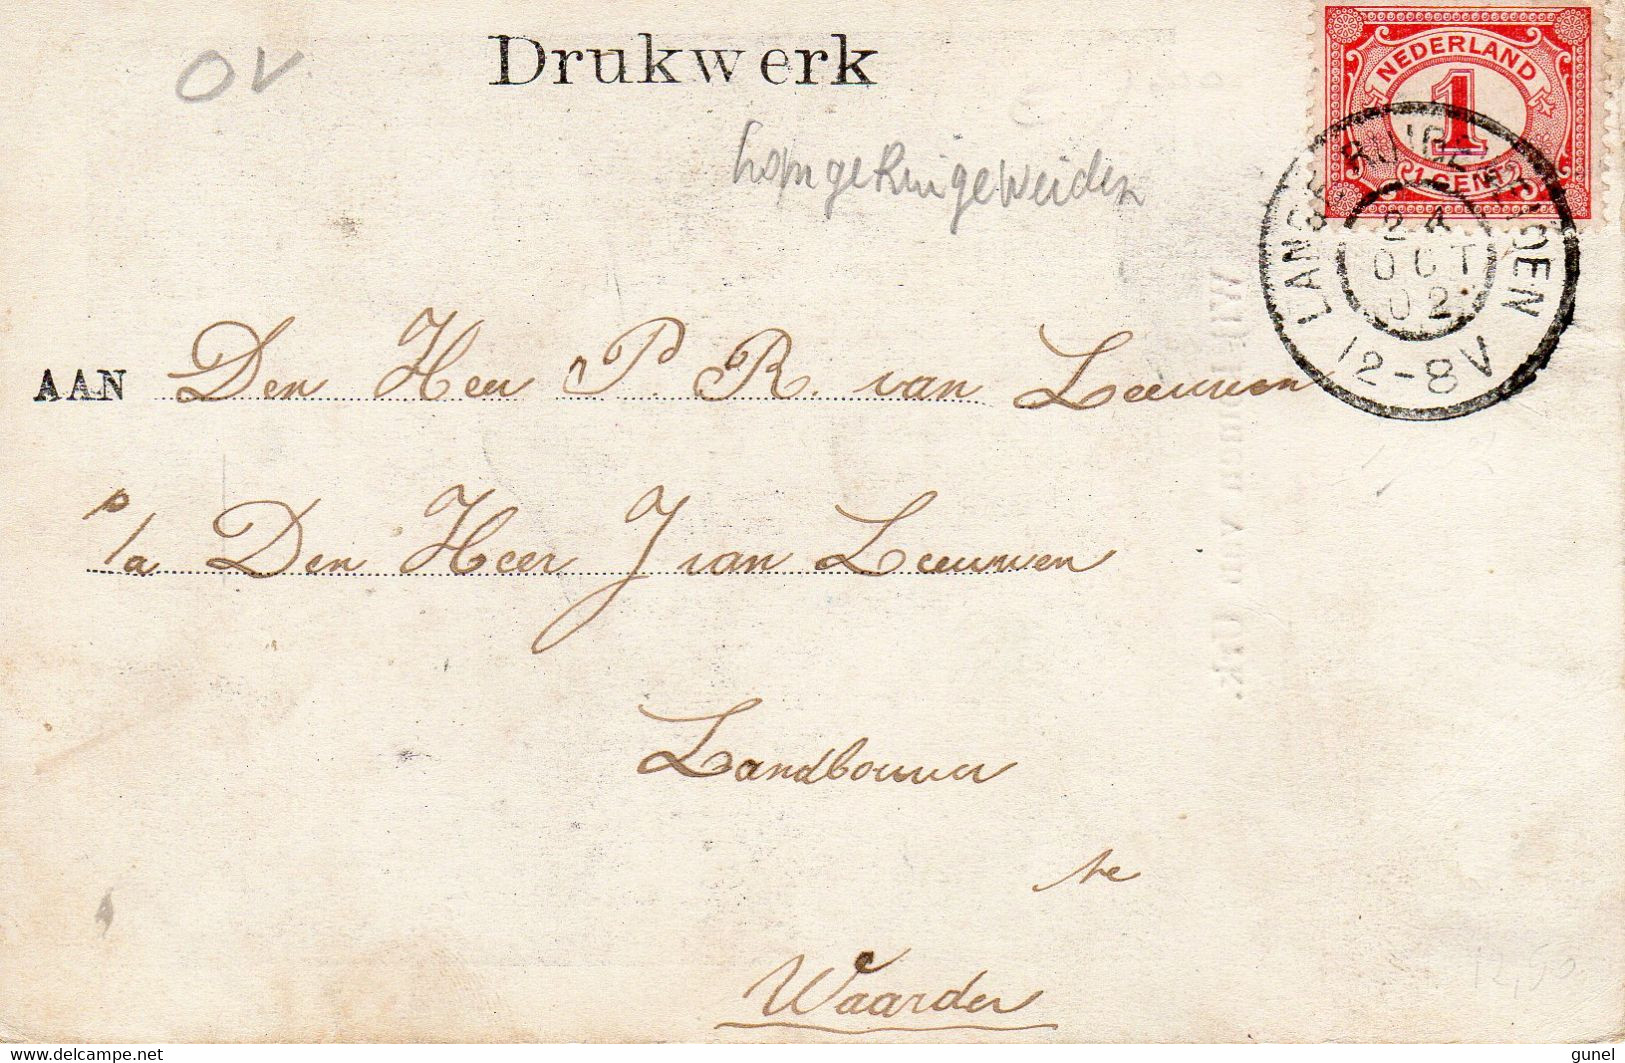 OV
Drukwerk
NEDERLAND
1
1 CENT
LANGE RUIGEWEIDEN
24
OCT
02
12-8V
AAN Den Heer P. R. van Leeuwen
p/a Den Heer J van Leeuwen
Landbouwer
te
Waarder
12,50
www.delcampe.net
gunel